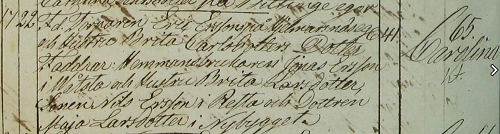 17 22
fd Torparen Eric Ersson på Hilmarsnäs ägor
och Hustru Brita Carlsdotters Dotter 41
Faddrar: Hemmansbrukaren Jonas Ersson
i Wätsta och Hustru Brita Larsdotter,
Sonen Nils Ersson i Resta och Dottren
Maja Larsdotter i Nybygget
65.
Carolina